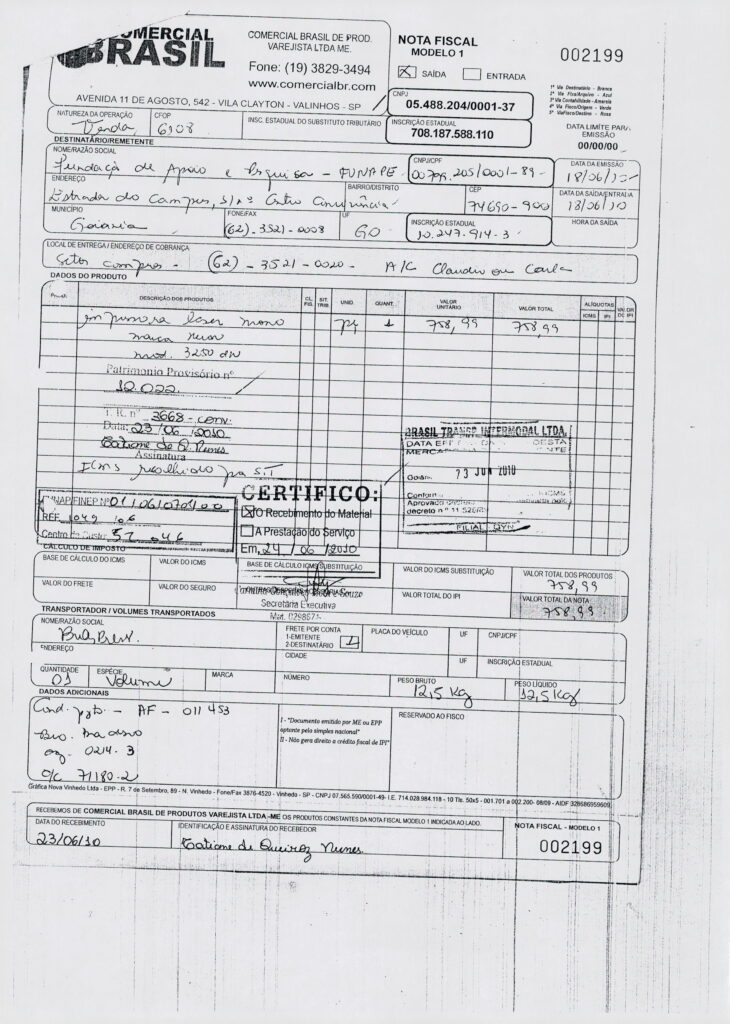 COMERCIAL
BRASIL
COMERCIAL BRASIL DE PROD.
VAREJISTA LTDA ME.
Fone: (19) 3829-3494
www.comercialbr.com
AVENIDA 11 DE AGOSTO, 542 - VILA CLAYTON - VALINHOS - SP
NOTA FISCAL
MODELO 1
X SAÍDA ENTRADA
002199
CNPJ
05.488.204/0001-37
1ª Via Destinatário - Branca
2ª Via Fixa/Arquivo - Azul
3ª Via Contabilidade - Amarela
4ª Via Fisco/Origem - Verde
5ª Via Fisco/Destino - Rosa
NATUREZA DA OPERAÇÃO CFOP INSC. ESTADUAL DO SUBSTITUTO TRIBUTÁRIO INSCRIÇÃO ESTADUAL
Venda 6108 708.187.588.110
DATA LIMITE PARA
EMISSÃO
00/00/00
DESTINATÁRIO/REMETENTE
NOME/RAZÃO SOCIAL CNPJ/CPF DATA DA EMISSÃO
Fundação de Apoio e Pesquisa - FUNAPE 00.799.205/0001-89 18/06/10
ENDEREÇO BAIRRO/DISTRITO CEP DATA DA SAÍDA/ENTRADA
Estrada do Campus, s/nº 74690-900 18/06/10
MUNICÍPIO FONE/FAX UF INSCRIÇÃO ESTADUAL HORA DA SAÍDA
Goiania (62)-3521-0008 GO 10.247.914-3
LOCAL DE ENTREGA / ENDEREÇO DE COBRANÇA
Setor compras - (62)-3521-0020- A/C Claudio ou Carla
DADOS DO PRODUTO
DESCRIÇÃO DOS PRODUTOS CL. FIS. SIT. TRIB. UNID. QUANT. VALOR UNITÁRIO VALOR TOTAL ALÍQUOTAS ICMS IPI VALOR DO IPI
impressora laser mono 1 758,99 758,99
marca
mod. 3250 dn
Patrimonio Provisório nº
12.022
T. R. nº 3668-conv.
Data: 23/06/2010
Tatiane de Q. Nunes
Assinatura
ICMS recolhido por S.T
BRASIL TRANSP INTERMODAL LTDA.
DESTA
23 JUN 2010
FILIAL GYN
FUNAPE/FINEP Nº 01.06.0709.00
REF 049 06
Centro de Custo 51.046
CERTIFICO:
X O Recebimento do Material
A Prestação do Serviço
Em, 24/06/2010
Secretária Executiva
CÁLCULO DE IMPOSTO
BASE DE CÁLCULO DO ICMS VALOR DO ICMS BASE DE CÁLCULO ICMS SUBSTITUIÇÃO VALOR DO ICMS SUBSTITUIÇÃO VALOR TOTAL DOS PRODUTOS
758,99
VALOR DO FRETE VALOR DO SEGURO VALOR TOTAL DO IPI VALOR TOTAL DA NOTA
758,99
TRANSPORTADOR / VOLUMES TRANSPORTADOS
NOME/RAZÃO SOCIAL FRETE POR CONTA PLACA DO VEÍCULO UF CNPJ/CPF
1-EMITENTE
2-DESTINATÁRIO 1
ENDEREÇO CIDADE UF INSCRIÇÃO ESTADUAL
QUANTIDADE ESPÉCIE MARCA NÚMERO PESO BRUTO PESO LÍQUIDO
01 Volume 12,5 Kg 12,5 Kg
DADOS ADICIONAIS
Cond. pgto. - AF - 011453
Bco. Bradesco
ag. 0214-3
C/C 71180-2
I - "Documento emitido por ME ou EPP
optante pelo simples nacional"
II - Não gera direito a crédito fiscal de IPI"
RESERVADO AO FISCO
Gráfica Nova Vinhedo Ltda - EPP - R. 7 de Setembro, 89 - N. Vinhedo - Fone/Fax 3876-4520 - Vinhedo - SP - CNPJ 07.565.590/0001-49- I.E. 714.028.984.118 - 10 Tls. 50x5 - 001.701 a 002.200- 08/09 - AIDF 328686959609
RECEBEMOS DE COMERCIAL BRASIL DE PRODUTOS VAREJISTA LTDA-ME OS PRODUTOS CONSTANTES DA NOTA FISCAL MODELO 1 INDICADA AO LADO.
DATA DO RECEBIMENTO IDENTIFICAÇÃO E ASSINATURA DO RECEBEDOR NOTA FISCAL - MODELO 1
23/06/10 Tatiane de Queiroz Nunes 002199